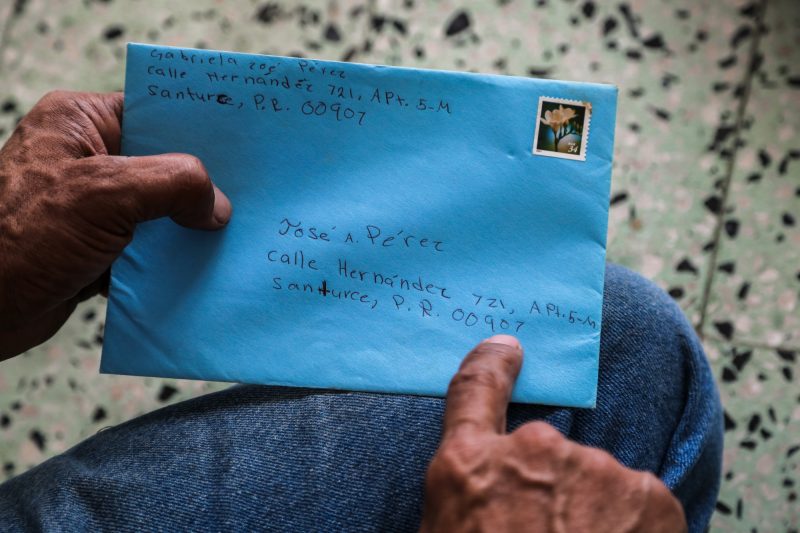 Gabriela José Pérez
calle Hernández 721, Apt. 5-M
Santurce, P.R. 00907
34
José A. Pérez
calle Hernández 721, APt. 5-M
santurce, P.R. 00907